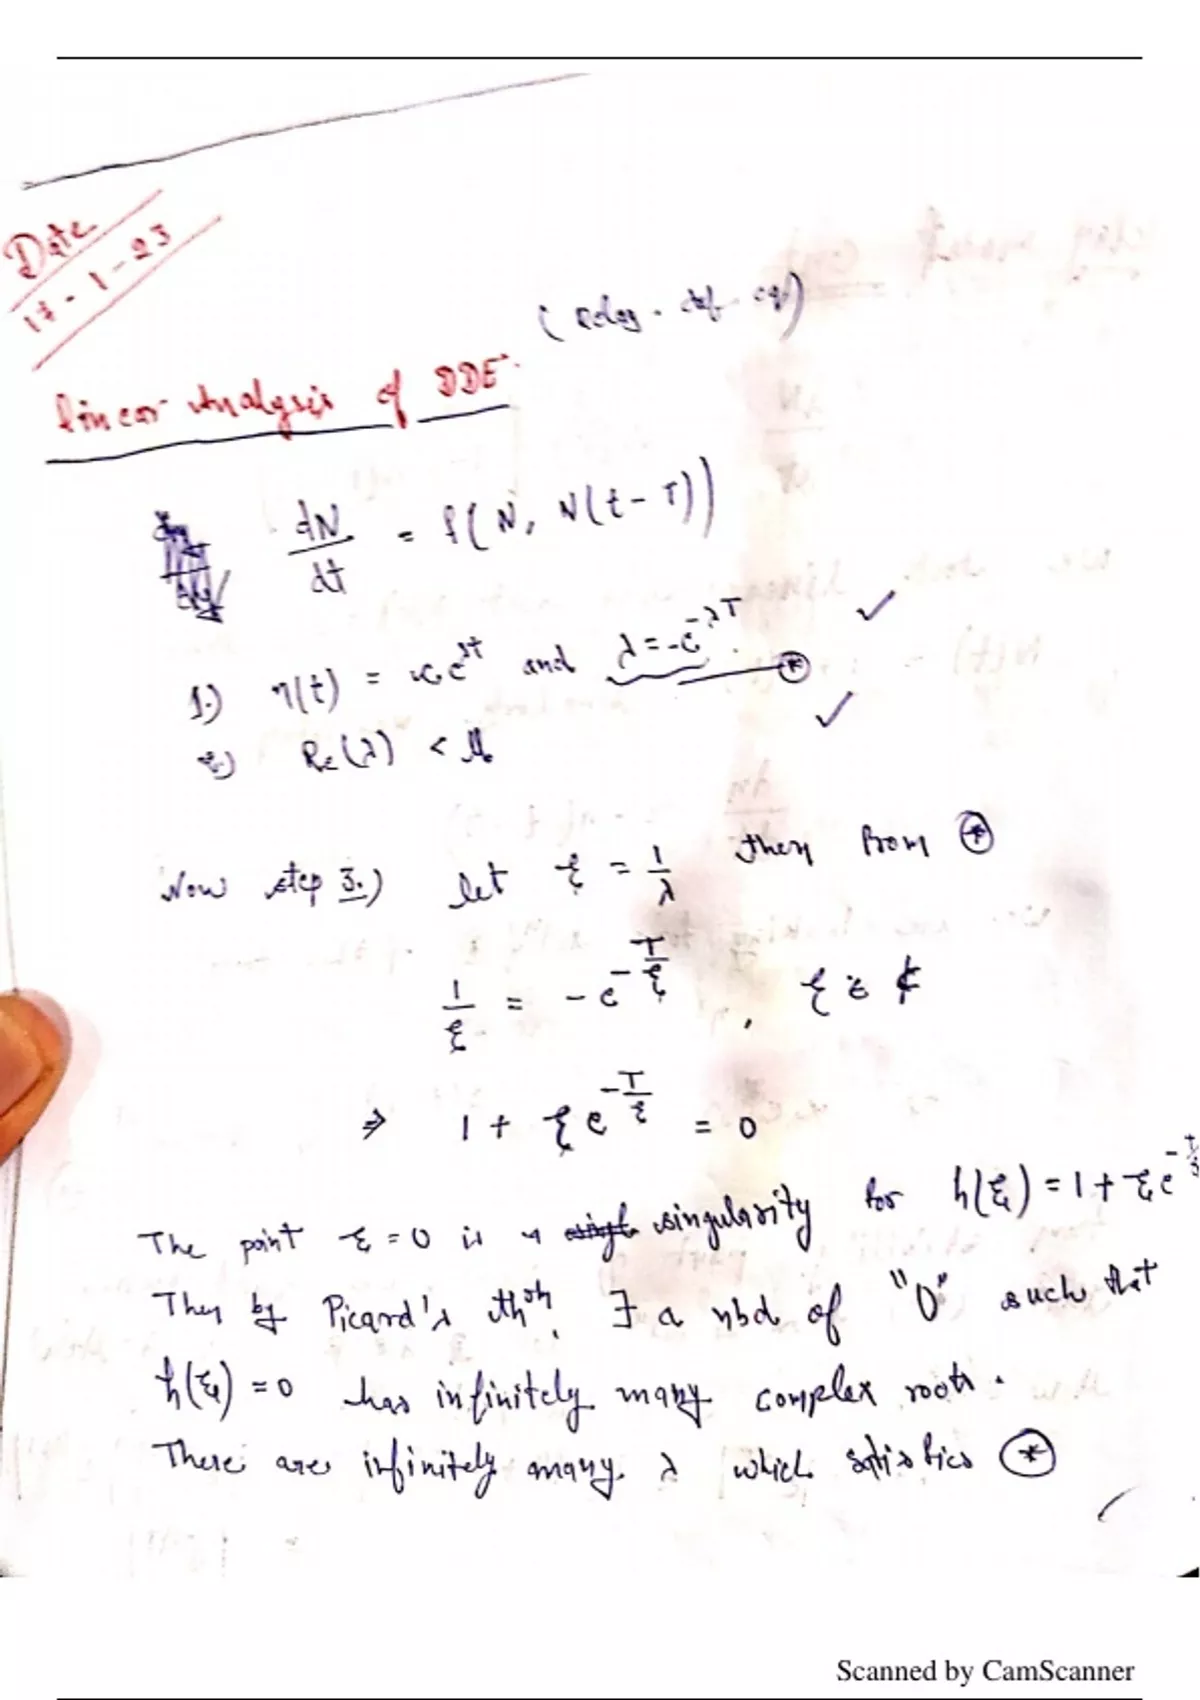 Date
17-1-23
( delay. dif. eq)
linear Analysis of DDE.
dN/dt = f(N, N(t-T))
1.) η(t) = c e^{λt} and λ = -e^{-λT}. ⊛ ✓
2.) Re(λ) < μ₀ ✓
Now step 3.) let ξ = 1/λ then from ⊛
1/ξ = -e^{-T/ξ}, ξ ∈ ℂ
⇒ 1 + ξ e^{-T/ξ} = 0
The point ξ = 0 is a singularity for h(ξ) = 1 + ξ e^{-T/ξ}
Then by Picard's thm. ∃ a nbd of "0" such that
h(ξ) = 0 has infinitely many complex roots.
There are infinitely many λ which satisfies ⊛
Scanned by CamScanner